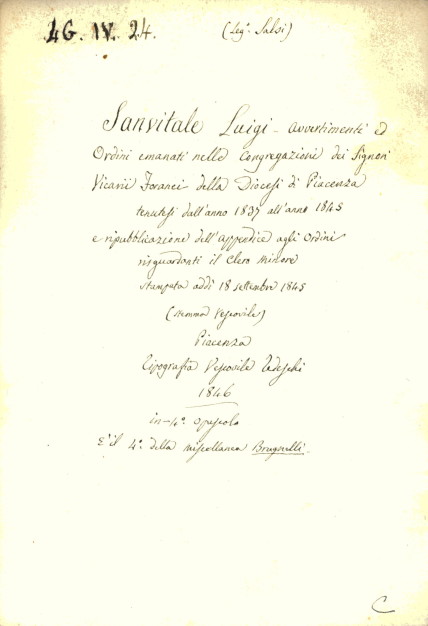 4G. IV. 24.
(Leg. Salsi)
Sanvitale Luigi - Avvertimenti ed
Ordini emanati nelle Congregazioni dei Signori
Vicarii Foranei della Diocesi di Piacenza
tenutesi dall'anno 1837 all'anno 1845
e ripubblicazione dell'appendice agli Ordini
risguardanti il Clero Minore
stampata addì 18 settembre 1845
(stemma Vescovile)
Piacenza
Tipografia Vescovile Tedeschi
1846
in-4º. opuscolo
È il 4º. della miscellanea Brugnelli.
C